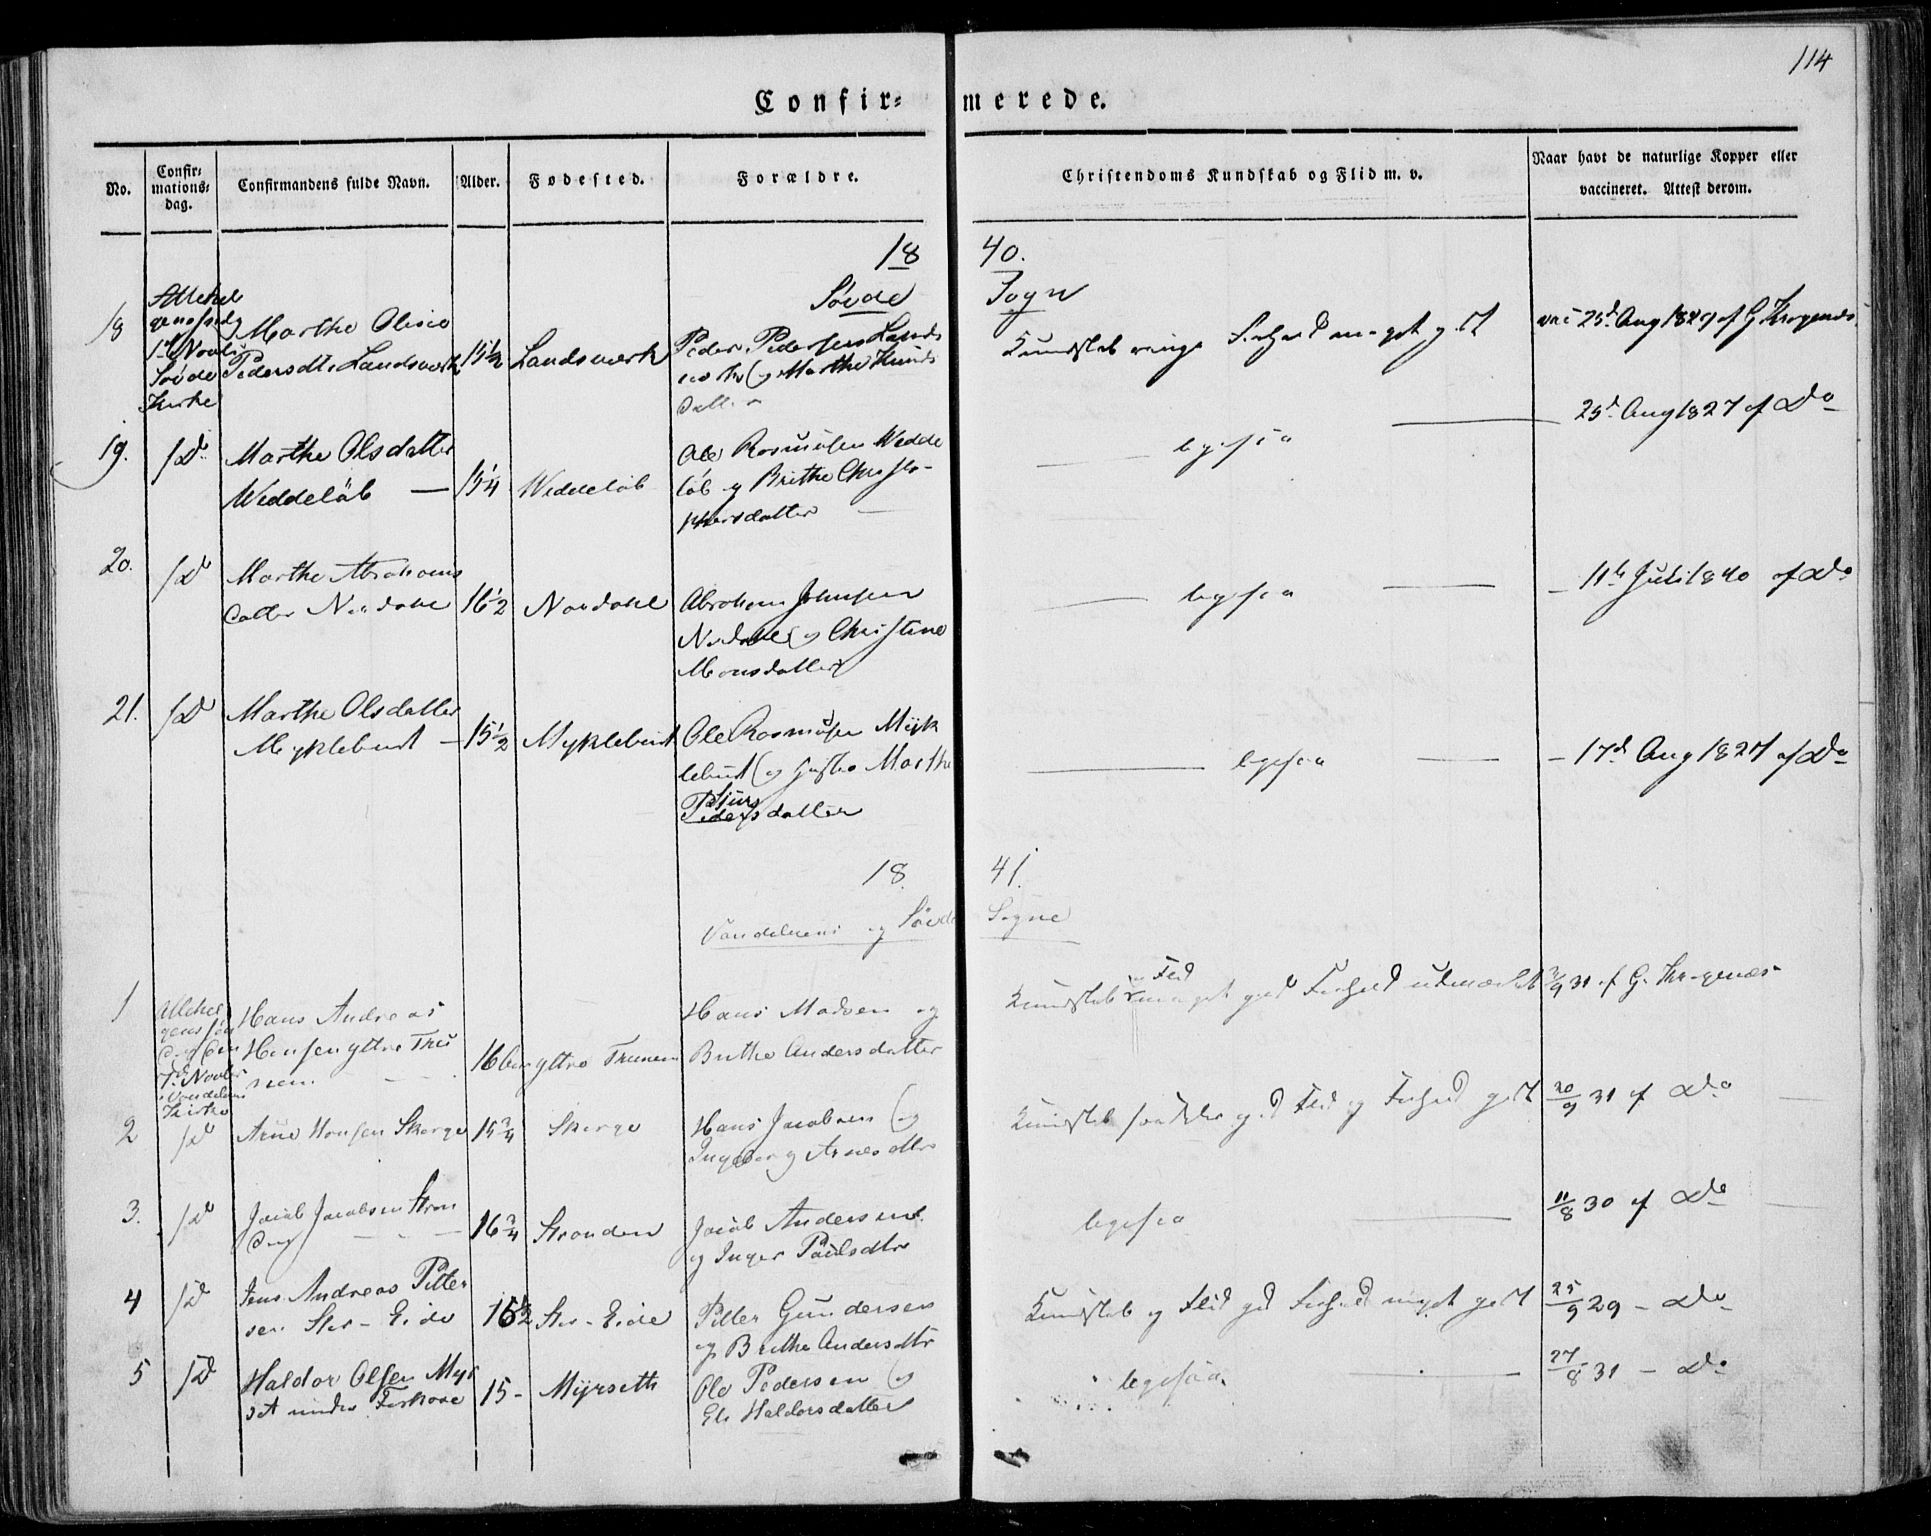 114
Confir- merede.
No.
Confir-
mations-
dag.
Confirmandens fulde Navn.
Alder.
Fødested.
Forældre.
Christendoms Kundskab og Flid m. v.
Naar havt de naturlige Kopper eller
vaccineret. Attest derom.
18 40.
Søvde Sogn
18
1ste Novbr
Søvde
Kirke
Marthe Olisie
Pedersdtr Landsverk
15 1/2
Landsverk
Peder Pedersen Lands
verk og Marthe Knuds
datter
Kundskab ringe Forhold meget godt
vac 25d Aug 1829 af G Krogenæs
19.
/Do
Marthe Olsdatter
Weddeløb —
15 1/4
Weddeløb
Ole Rasmusen Wedde
løb og Brithe Christo-
phersdatter
ligesaa
25d Aug 1827 af Do
20.
/Do
Marthe Abrahams
datter Nordahl
16 1/2
Nordahl
Abraham Johnsen
Nordahl og Christine
Monsdatter
ligesaa
11te Juli 1840 af Do
21.
/Do
Marthe Olsdatter
Myklebust —
15 1/2
Myklebust
Ole Rasmusen Myk
lebust og Hustro Marthe
Sjurs
Pedersdatter
ligesaa
— 17d Aug 1827 af Do
18 41.
Vandelvens og Søvde Sogne
1
7d Novbr
Vandelvens
Kirke
Hans Andreas
Hansen yttre Thu
nem
16
yttre Thunem
Hans Madsen og
Brithe Andersdatter
Flid
Kundskab meget god Forhold udmærket
2/9 31 af G. Krogenæs
2
/Do
Arne Hansen Skorge
15 3/4
Skorge
Hans Jacobsen og
Ingeborg Arnesdtr
Kundskab saadeles god Flid og Forhold godt
20/9 31 af Do
3.
/Do
Jacob Jacobsen Stran
den
16 3/4
Stranden
Jacob Andersen
og Inger Paulsdtr
ligesaa
11/8 30 af Do
4
/Do
Jens Andreas Petter
sen Stor-Eide
16 1/2
Stor-Eide
Petter Gundersen
og Brithe Andersdtr
Kundskab og Flid god Forhold meget godt
25/9 29 — Do
5
/Do
Haldor Olsen Myr
set under
15 -
Myrseth
Ole Pedersen og
Eli Haldorsdatter
ligesaa
27/8 31 — Do